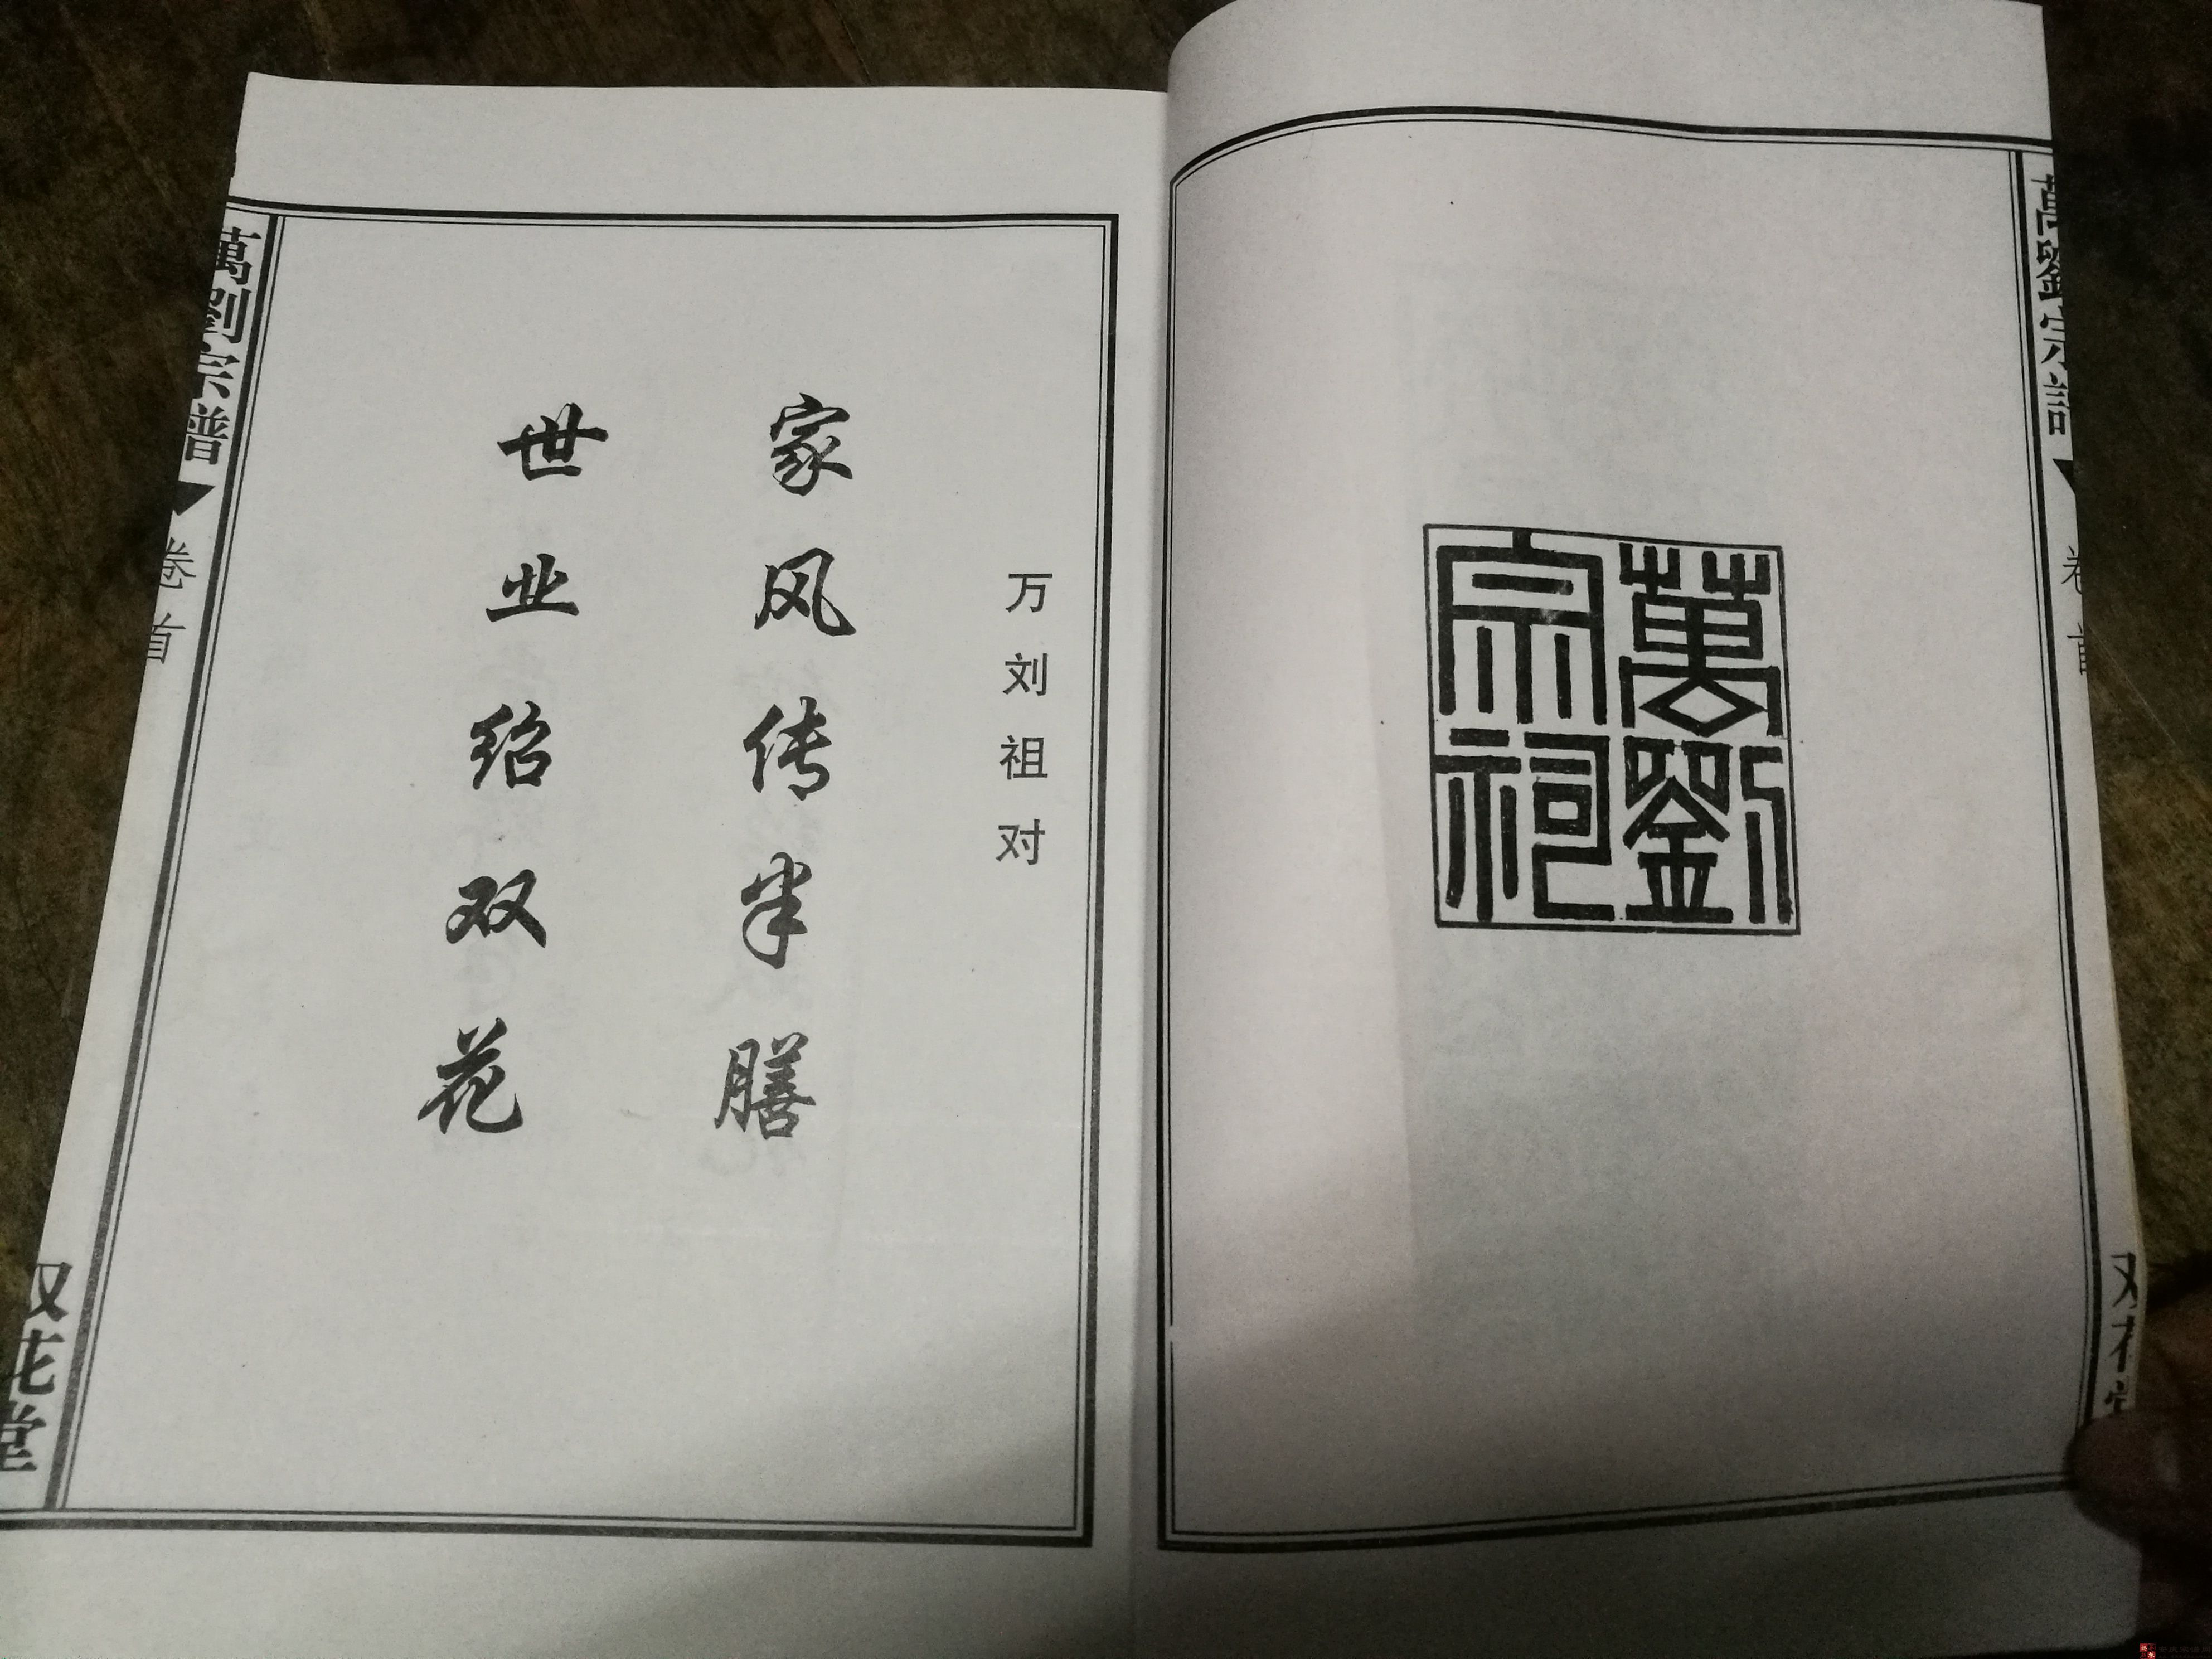 萬劉宗譜
卷首
萬劉宗祠
万刘祖对
家风传半膳
世业绍双花
萬劉宗譜
卷首
双花堂